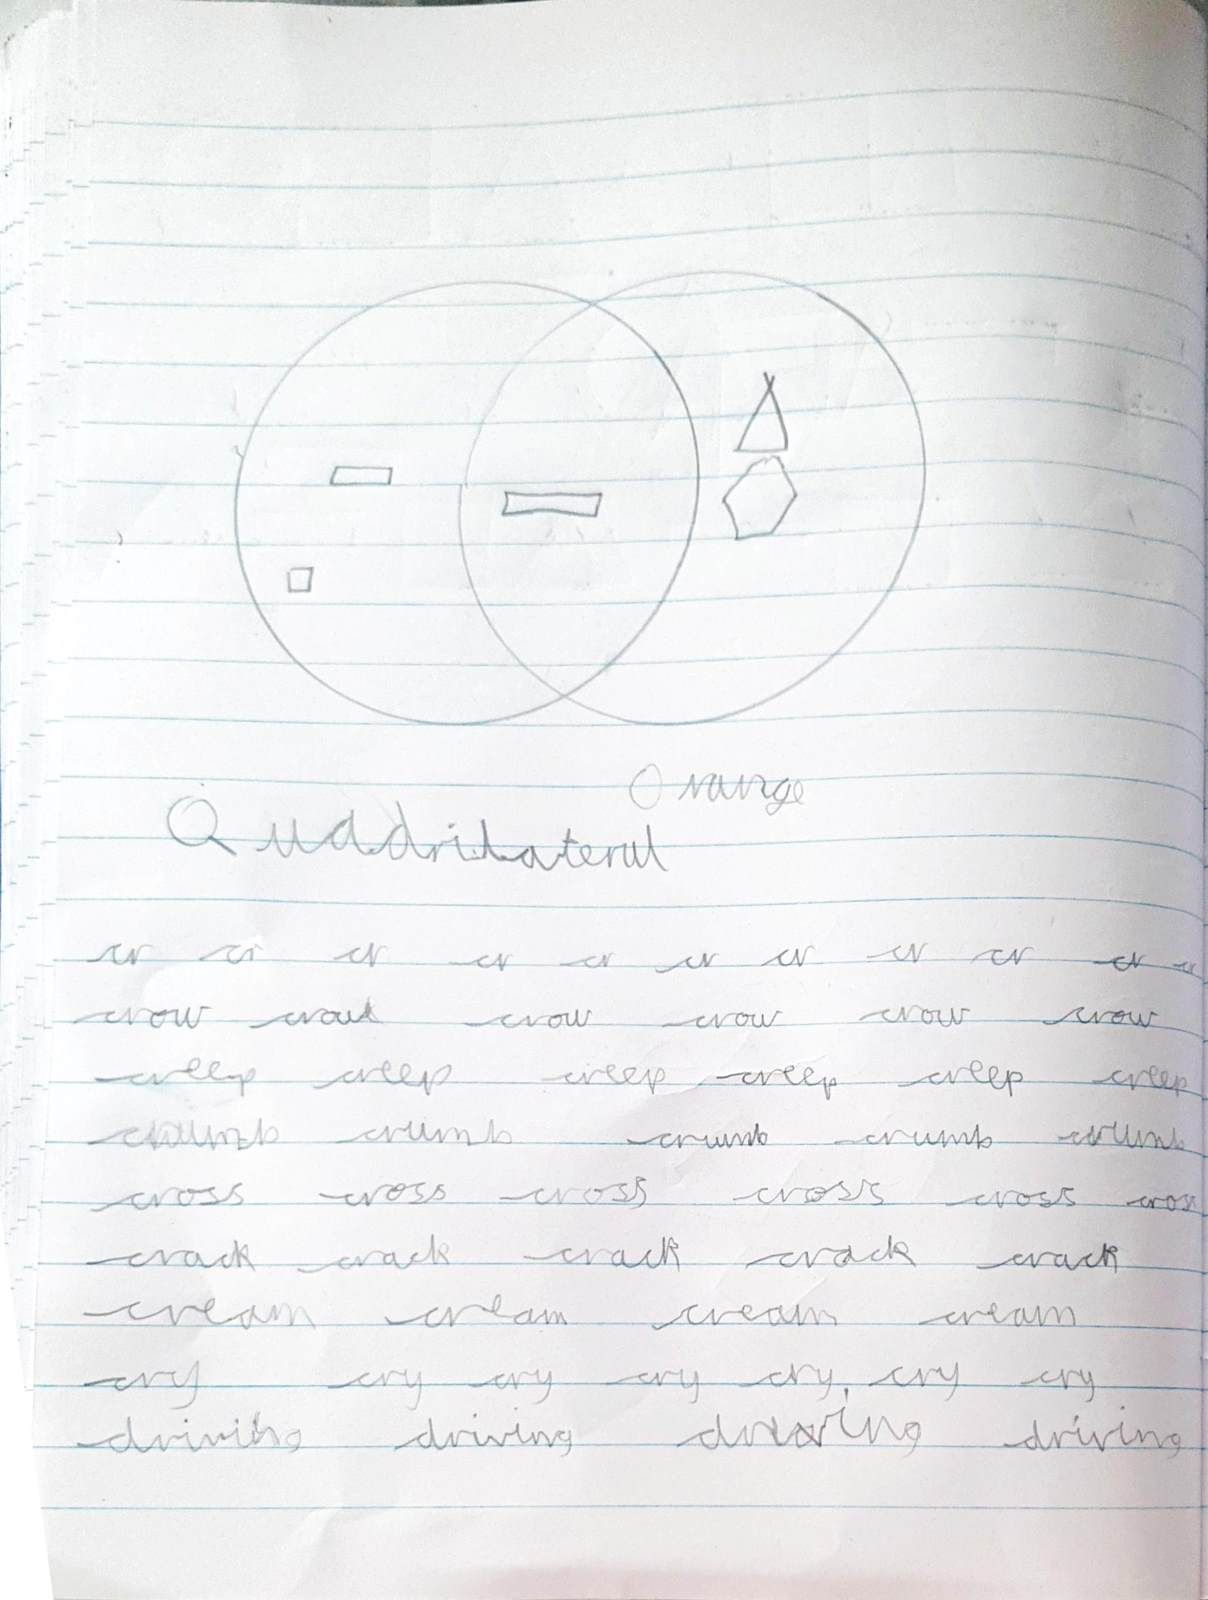 Orange
Quadrilateral
cr cr cr cr cr cr cr cr cr cr cr
crow crow crow crow crow crow
creep creep creep creep creep creep
crumb crumb crumb crumb crumb
cross cross cross cross cross cross
crack crack crack crack crack
cream cream cream cream
cry cry cry cry cry, cry cry
driving driving driving